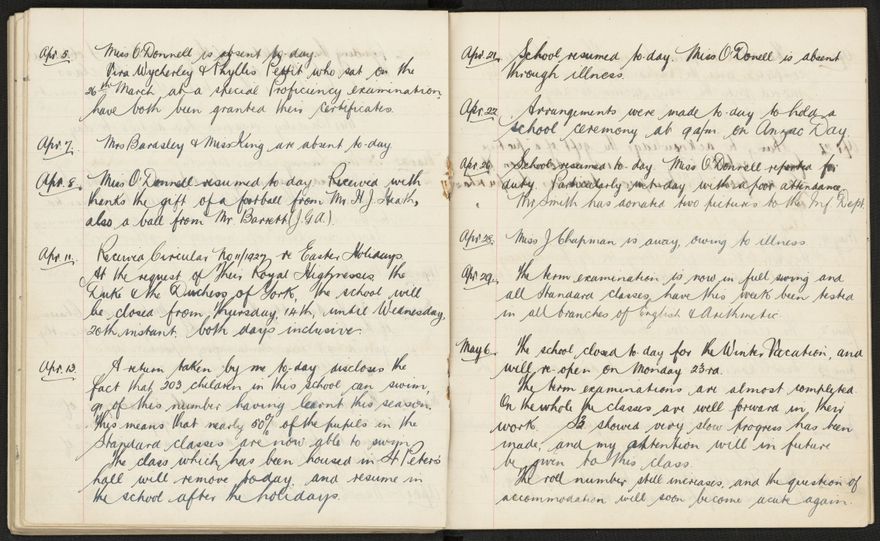 Apr. 5. Miss O'Donnell is absent to-day.
Vira Wycherley & Phyllis Pettit who sat on the
26th March at a special Proficiency examination,
have both been granted their certificates.
Apr. 7. Mrs Bardsley & Miss King are absent to-day
Apr. 8. Miss O'Donnell resumed to day Received with
thanks the gift of a football from Mr. H. J. Heath,
also a ball from Mr Barrett (J.G.A.)
Apr. 11. Received Circular No 11/1927 re Easter Holidays.
At the request of Their Royal Highnesses, the
Duke & the Duchess of York, the school will
be closed from Thursday, 14th, until Wednesday,
20th instant, both days inclusive.
Apr. 13. A return taken by me to-day discloses the
fact that 203 children in this school can swim,
of this number having learnt this season.
This means that nearly 50% of the pupils in the
Standard classes are now able to swim.
The class which has been housed in St Peter's
hall will remove to day, and resume in
the school after the holidays.
Apr. 21. School resumed to-day. Miss O'Donell is absent
through illness.
Apr. 22. Arrangements were made to-day to hold a
school ceremony at 9 a/m on Anzac Day
Apr. 26. School resumed to day Miss O'Donnell reported for
duty. Particularly wet day with a poor attendance.
" Mr Smith has donated two pictures to the Inf. Dept.
Apr. 28. Miss J Chapman is away, owing to illness
Apr. 29. The term examination is now in full swing and
all Standard classes have this week been tested
in all branches of English & Arithmetic.
May 6. The school closed to day for the Winter Vacation, and
will re-open on Monday 23rd.
The term examinations are almost completed.
On the whole the classes are well forward in their
work. S3 showed very slow progress has been
made, and my attention will in future
be given to this class.
The roll number still increases, and the question of
accommodation will soon become acute again.